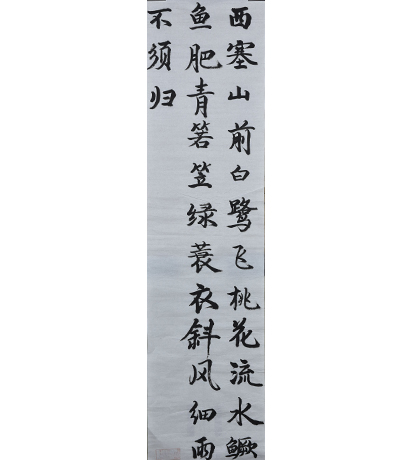 西塞山前白鹭飞桃花流水鳜
鱼肥青箬笠绿蓑衣斜风细雨
不须归